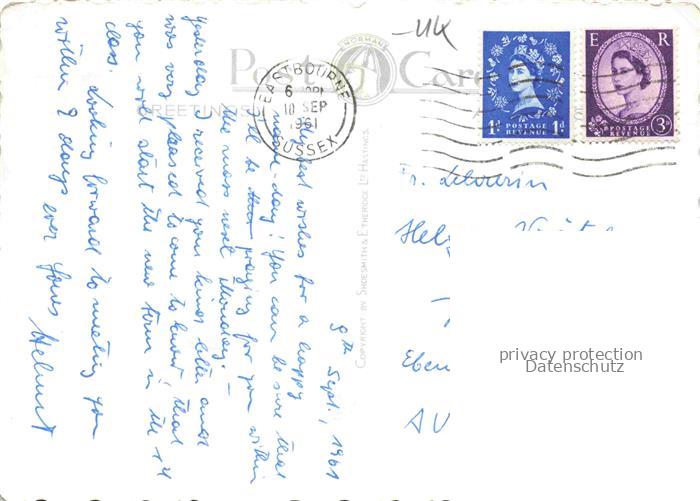 -UK
Post Card
NORMAN
GREETINGS
EASTBOURNE
6 PM
10 SEP
1961
SUSSEX
1D POSTAGE REVENUE 1D
E R
POSTAGE REVENUE 3D
9th Sept., 1961
wishes for a happy
name-day! You can be sure that
I'll be praying for you within
the mass next Monday. —
Yesterday I received your kind letter and
was very pleased to come to know, that
you will start the new term in the 14
class. Looking forward to meeting you
within 2 days ever Yours
Helmut
COPYRIGHT BY SHOESMITH & ETHERIDGE LTD HASTINGS
Fr.
Helg
Eben
AU
privacy protection
Datenschutz